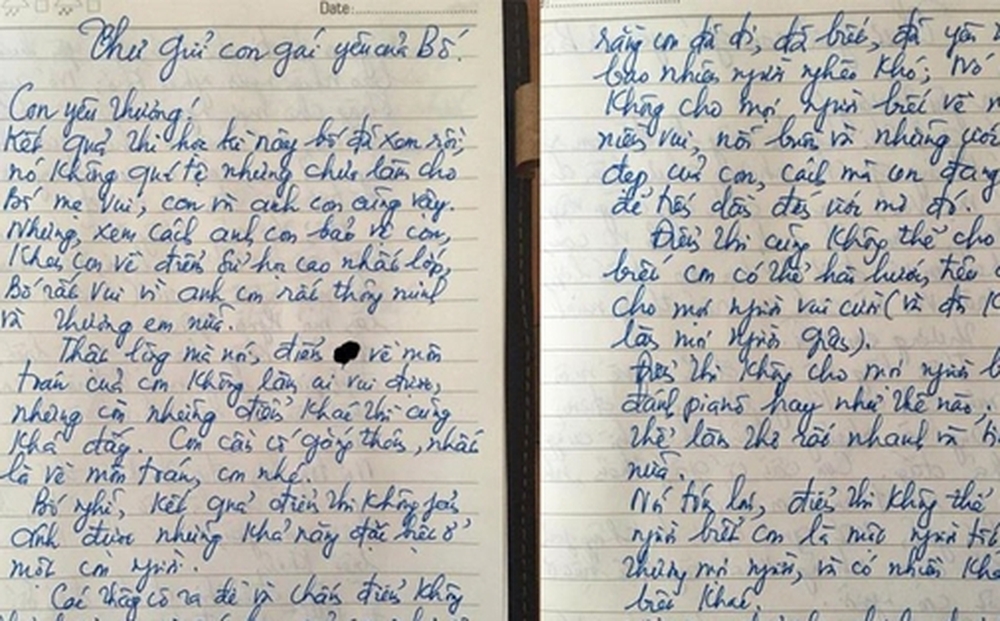 Date:
Thư gửi con gái yêu của Bố.
Con yêu thương!
Kết quả thi học kì này bố đã xem rồi,
nó không quá tệ nhưng chưa làm cho
Bố mẹ vui, con và anh con cũng vậy.
Nhưng, xem cách anh con bảo vệ con,
khoe con về điểm sử học cao nhất lớp,
Bố rất vui vì anh con rất thông minh
và thương em nữa.
Thật lòng mà nói, điểm về môn
toán của con không làm ai vui được,
nhưng còn những điểm khác thì cũng
khá đấy. Con cần cố gắng thêm, nhất
là về môn toán, con nhé.
Bố nghĩ, kết quả điểm thi không
định được những khả năng đặc biệt ở
một con người.
Các thầy cô ra đề và chấm điểm không
rằng con đã đi, đã biết, đã yên
bao nhiêu người nghèo khó; Nó
không cho mọi người biết về
niềm vui, nỗi buồn và những ước
đẹp của con, cách mà con đang
để tiến dần đến ước mơ đó.
Điểm thi cũng không thể cho
biết con có thể hài hước, tếu
cho mọi người vui cười (và đôi
làm mọi người giận).
Điểm thi không cho mọi người
đánh pianô hay như thế nào.
thể làm thơ rất nhanh và
nữa.
Nói tóm lại, điểm thi không thể
người biết con là một người
thương mọi người, và có nhiều
biệt khác.